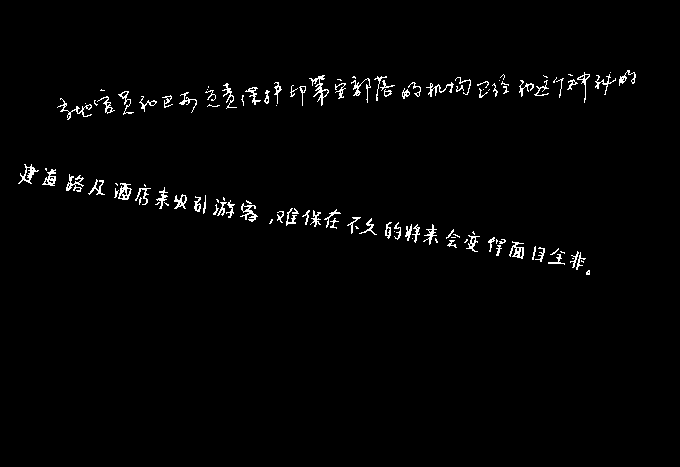 当地官员和巴西负责保护印第安部落的机构已经和这个神秘的
建道路及酒店来吸引游客,难保在不久的将来会变得面目全非。